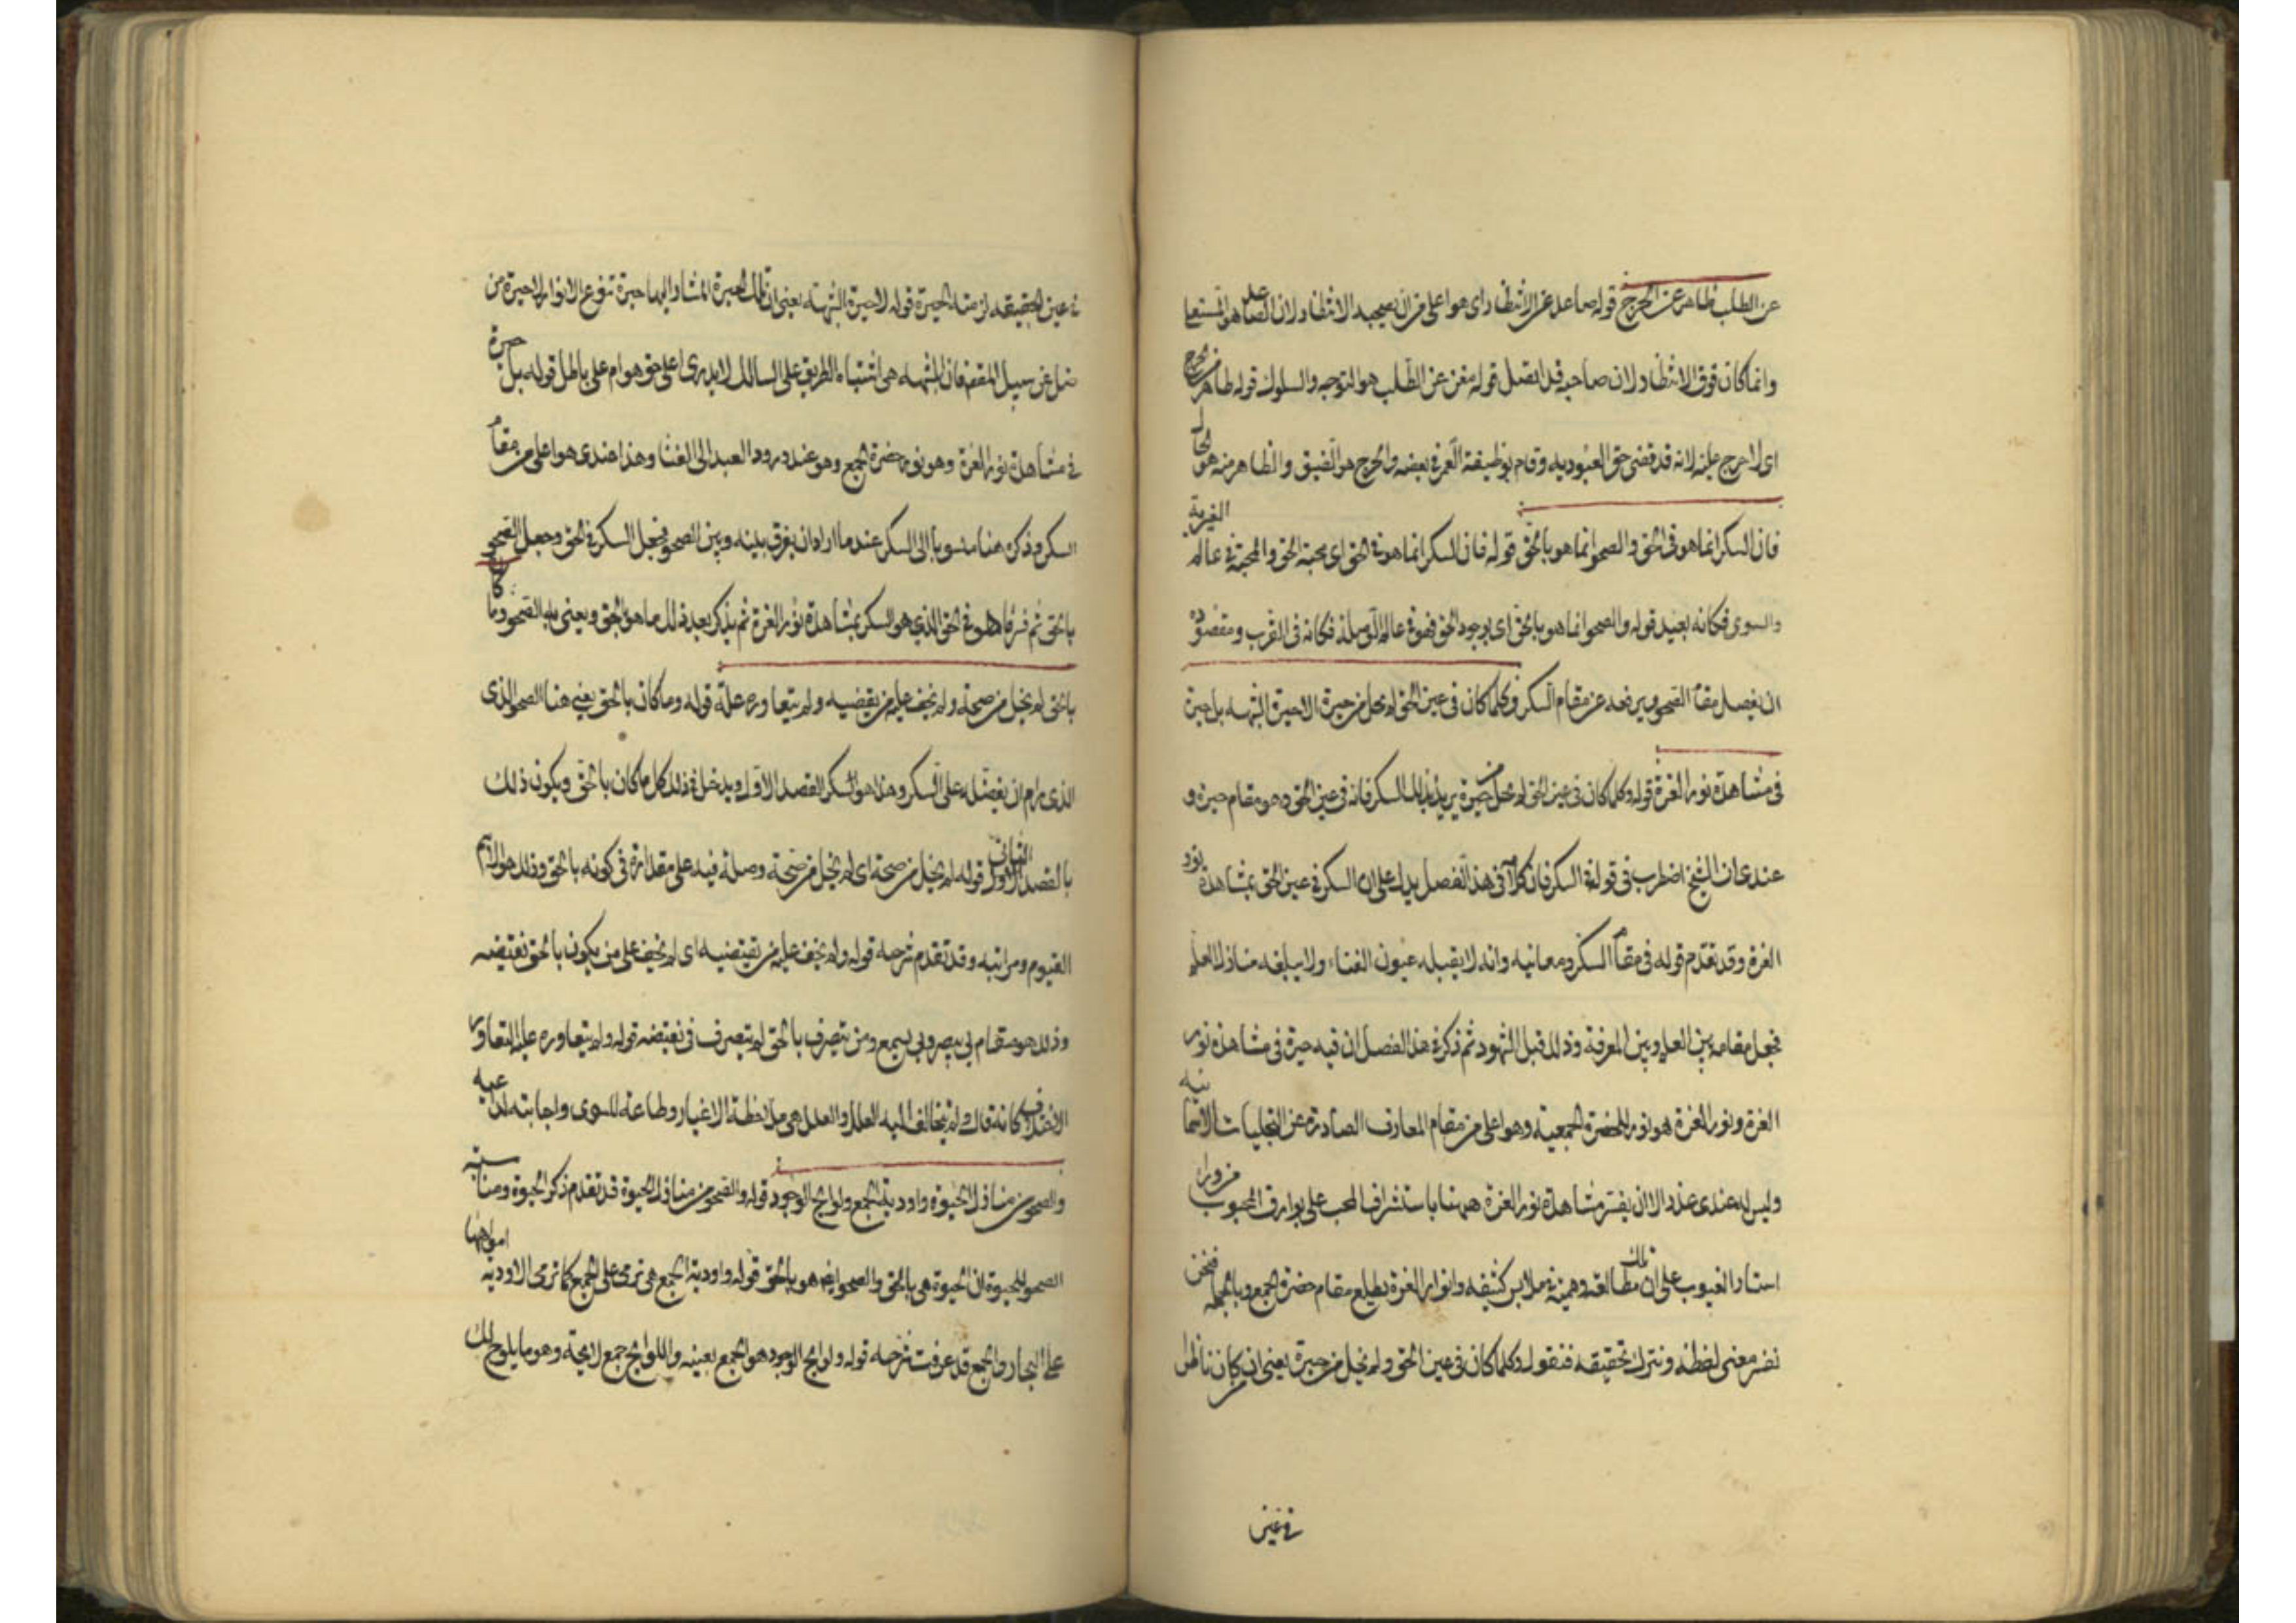 عن الطلب طاهر عن الحرج قوله صاعد عن الانتظار اى هو اعلى من ان يصحبه الانتظار لان الصاعد هو المستعلى
وانما كان فوق الانتظار لان صاحبه قد اتصل قوله مغن عن الطلب هو التوجه والسلوك قوله طاهر من الحرج
اى لا حرج عليه لانه قد قضى حق العبوديه وقام بوظيفة بعضه والحرج هو الضيق والطاهر منه هو الخال
فان السكر انما هو فى الحق والصحو انما هو بالحق قوله فان السكر انما هو فى الحق اى محبة الحق والمحبة فى عالم الغيرية
والسوى فكانه بعيد قوله والصحو انما هو بالحق اى بوجود الحق فهو فى عالم فكانه فى القرب ومقصوده
ان يفصل مقام الصحو ويرفعه عن مقام السكر وكلما كان فى عين الحق لم يخل من حيرة لا حيرة الشبهه بل حيرة
فى مشاهدة نور العزة قوله وكلما كان فى عين الحق لم يخل من حيرة يريد بذلك السكر فانه فى عين الحق وهو مقام حيرة و
عندى ان الشيخ اضطرب فى قوله فى السكر فان كلامه فى هذا الفصل يدل على ان السكر فى عين الحق بمشاهدة نور
العزة وقد تقدم قوله فى مقام السكر ومعانيه وانه لا يقبله عيون الفناء ولا يبلغه منازل العلم
فجعل مقامه بين العلم وبين المعرفة وذلك قبل الشهود ثم ذكر فى هذا الفصل ان فيه حيرة فى مشاهدة نور
العزة ونور العزة هو نور الحضرة الجمعية وهو اعلى من مقام المعارف الصادرة عن التجليات الاسمائيه
وليس له عندى عذر الا ان يفسر مشاهدة نور العزة ههنا باستشراف المحب على بوارق المحبوب من وراء
استار الغيوب على ان تلك مطالعة وهمية فى ملابس كثيفه وانوار العزة بطليع مقام حضرة الجمع وبالجمله فنحن
نفسر معنى لفظه ونترك تحقيقه فنقول وكلما كان فى عين الحق ولم يخل من حيرة يعنى ان من كان ناظرا
فى عين
فى عين الحقيقه لزمته الحيرة قوله لا حيرة الشبهه يعنى ان تلك الحيرة المشار اليها حيرة تنوع الانوار لا حيرة من
ضل عن سبيل المقصد فان الشبهه هى اشتباه الطريق على السالك لا يدرى اعلى حق هو ام على باطل قوله بل حيرة
فى مشاهدة نور العزة وهو نور حضرة الجمع وهو عند ورود العبد الى الفنا وهذا عندى هو اعلى من مقام
السكر وذكره هنا منسوبا الى السكر عند ما اراد ان يفرق بينه وبين الصحو فجعل السكر فى الحق وجعل الصحو
بالحق ثم فسر ما هو فى الحق الذى هو السكر بمشاهدة نور العزة ثم يذكر بعد ذلك ما هو بالحق ويعنى به الصحو وما كان
بالحق لم يخل من صحة ولم يخف عليه من نقيضه ولم يتعاوره علة قوله وما كان بالحق يعنى هنا الصحو الذى
الذى رام ان يفضله على السكر وهذا هو السكر القصد الاول ويدخل فى ذلك كل ما كان بالحق ويكون ذلك
بالقصد الثانى قوله لم يخل من صحة اى لم يخل من صحة وصلة فيه على مقداره فى كونه بالحق وذلك هو الاسم
القيوم ومراتبه وقد تقدم شرحه قوله ولم يخف عليه من نقيضه اى لم يخف على من يكون بالحق نقيضه
وذلك هو مقام بى يبصر وبى يسمع ومن يتصرف بالحق لم يتصرف فى نقيضه قوله ولم يتعاوره علة التعاور
الاختلاف كانه قال ولم يتخالف اليه العلل والعلل هى ملاحظة الاغيار وطاعة للسوى واجابته لداعيه
والصحو من منازل الحيوة واودية الجمع ولوايح الوجود قوله والصحو من منازل الحيوة قد تقدم ذكر الحيوة ومناسبة
الصحو للحيوة ان الحيوة هى بالحق والصحو ايضا هو بالحق قوله واودية الجمع هى ترمى على الجمع كما ترمى الاودية امواهها
على البحار والجمع قد عرفت شرحه قوله ولوايح الوجود هو الجمع بعينه واللوايح جمع لايحة وهو ما يلوح لك